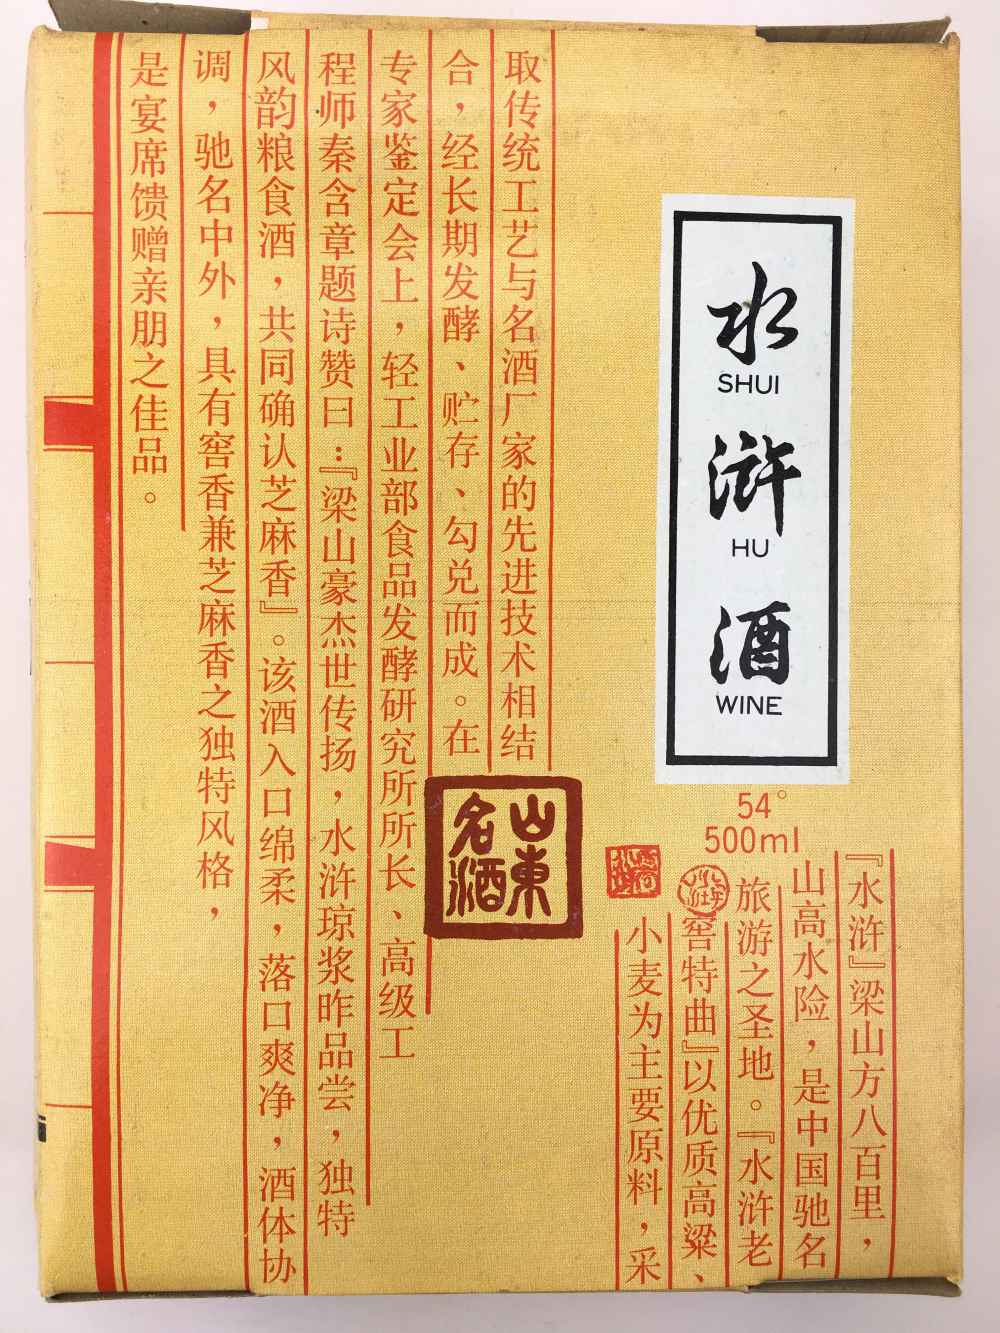 水
SHUI
浒
HU
酒
WINE
54°
500ml
『水浒』梁山方八百里，
山高水险，是中国驰名
旅游之圣地。『水浒老
窖特曲』以优质高粱、
小麦为主要原料，采
取传统工艺与名酒厂家的先进技术相结
合，经长期发酵、贮存、勾兑而成。在
专家鉴定会上，轻工业部食品发酵研究所所长、高级工
程师秦含章题诗赞曰：『梁山豪杰世传扬，水浒琼浆昨品尝，独特
风韵粮食酒，共同确认芝麻香』。该酒入口绵柔，落口爽净，酒体协
调，驰名中外，具有窖香兼芝麻香之独特风格，
是宴席馈赠亲朋之佳品。
山東
名酒